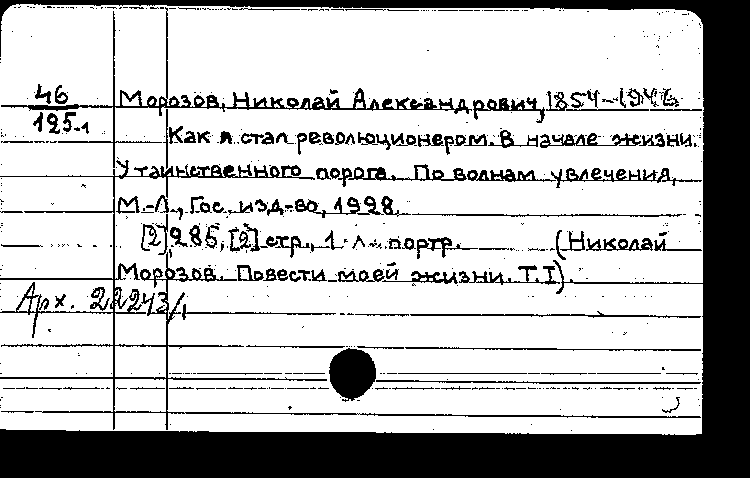 46
125-1
Морозов, Николай Александрович, 1854-1946
Как я стал революционером. В начале жизни.
У таинственного порога. По волнам увлечения.
М.-Л., Гос. изд-во, 1928.
[2], 285, [2] стр., 1 л. портр. (Николай
Морозов. Повести моей жизни. Т. I).
Арх. 22243/1